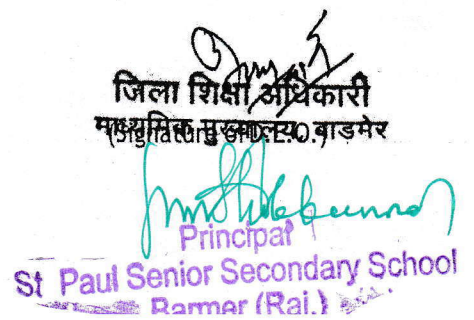 जिला शिक्षा अधिकारी
माध्यमिक मुख्यालय बाडमेर
(Signature of D.E.O.)
Principal
St Paul Senior Secondary School
Barmer (Raj.)